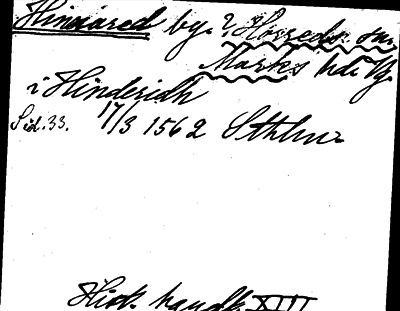 Hinnared by. i Horreds sn.
Marks hd. Vg.
i Hinderidh
Sid. 33. 17/3 1562 Sthlm
Hist. handl. XIII